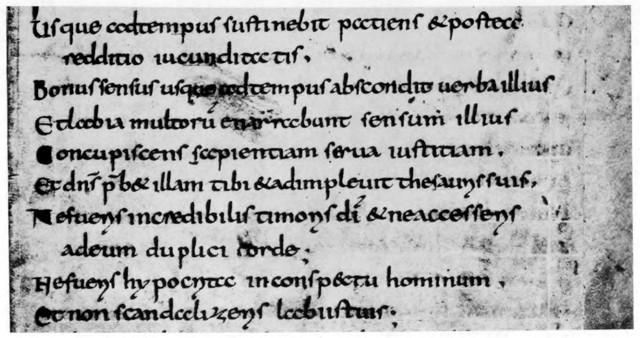 Usque adtempus sustinebit patiens & postea
redditio iucunditatis.
Bonus sensus usque adtempus abscondit uerba illius
Et labia multorū enarrabunt sensum illius
Concupiscens sapientiam serua iustitiam.
Et dn̄s p̄b& illam tibi & adimpleuit thesauris suis.
Ne fueris incredibilis timoris dī & neaccesseris
adeum duplici corde.
Ne fueris hypocrita inconspectu hominum.
Et non scandalizeris labiis tuis.